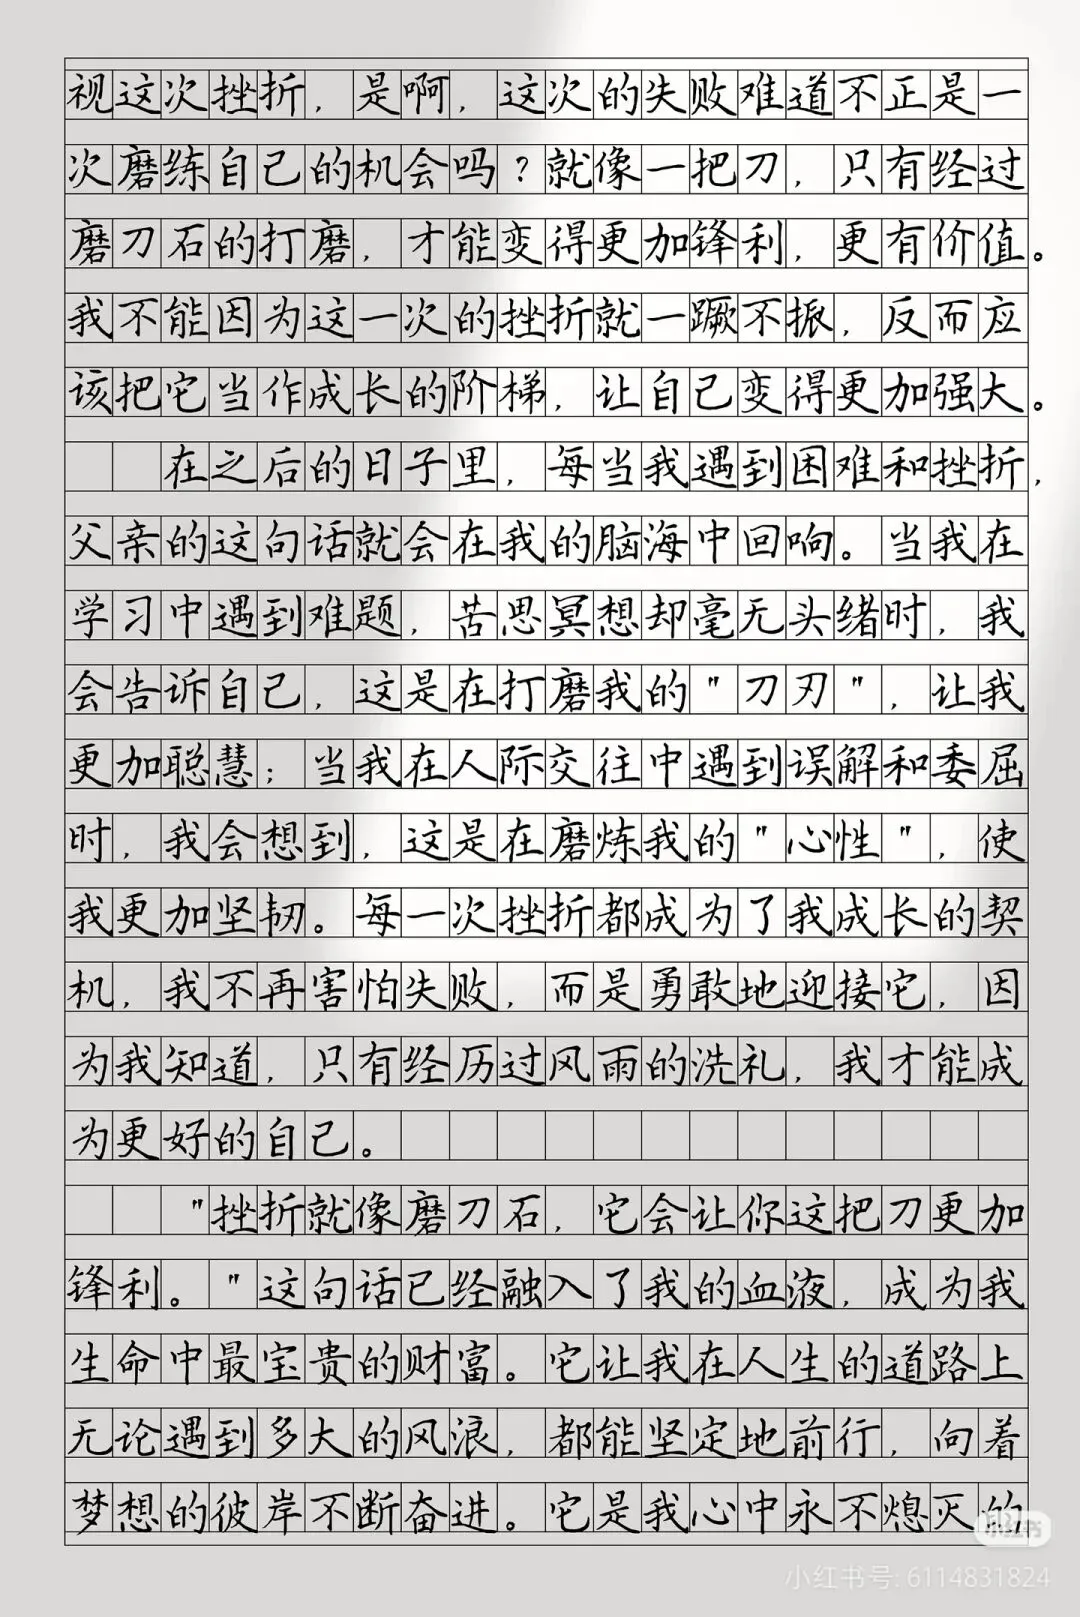 视这次挫折，是啊，这次的失败难道不正是一
次磨练自己的机会吗？就像一把刀，只有经过
磨刀石的打磨，才能变得更加锋利，更有价值。
我不能因为这一次的挫折就一蹶不振，反而应
该把它当作成长的阶梯，让自己变得更加强大。
在之后的日子里，每当我遇到困难和挫折，
父亲的这句话就会在我的脑海中回响。当我在
学习中遇到难题，苦思冥想却毫无头绪时，我
会告诉自己，这是在打磨我的"刀刃"，让我
更加聪慧；当我在人际交往中遇到误解和委屈
时，我会想到，这是在磨炼我的"心性"，使
我更加坚韧。每一次挫折都成为了我成长的契
机，我不再害怕失败，而是勇敢地迎接它，因
为我知道，只有经历过风雨的洗礼，我才能成
为更好的自己。
"挫折就像磨刀石，它会让你这把刀更加
锋利。"这句话已经融入了我的血液，成为我
生命中最宝贵的财富。它让我在人生的道路上
无论遇到多大的风浪，都能坚定地前行，向着
梦想的彼岸不断奋进。它是我心中永不熄灭的
小红书
小红书号: 6114831824